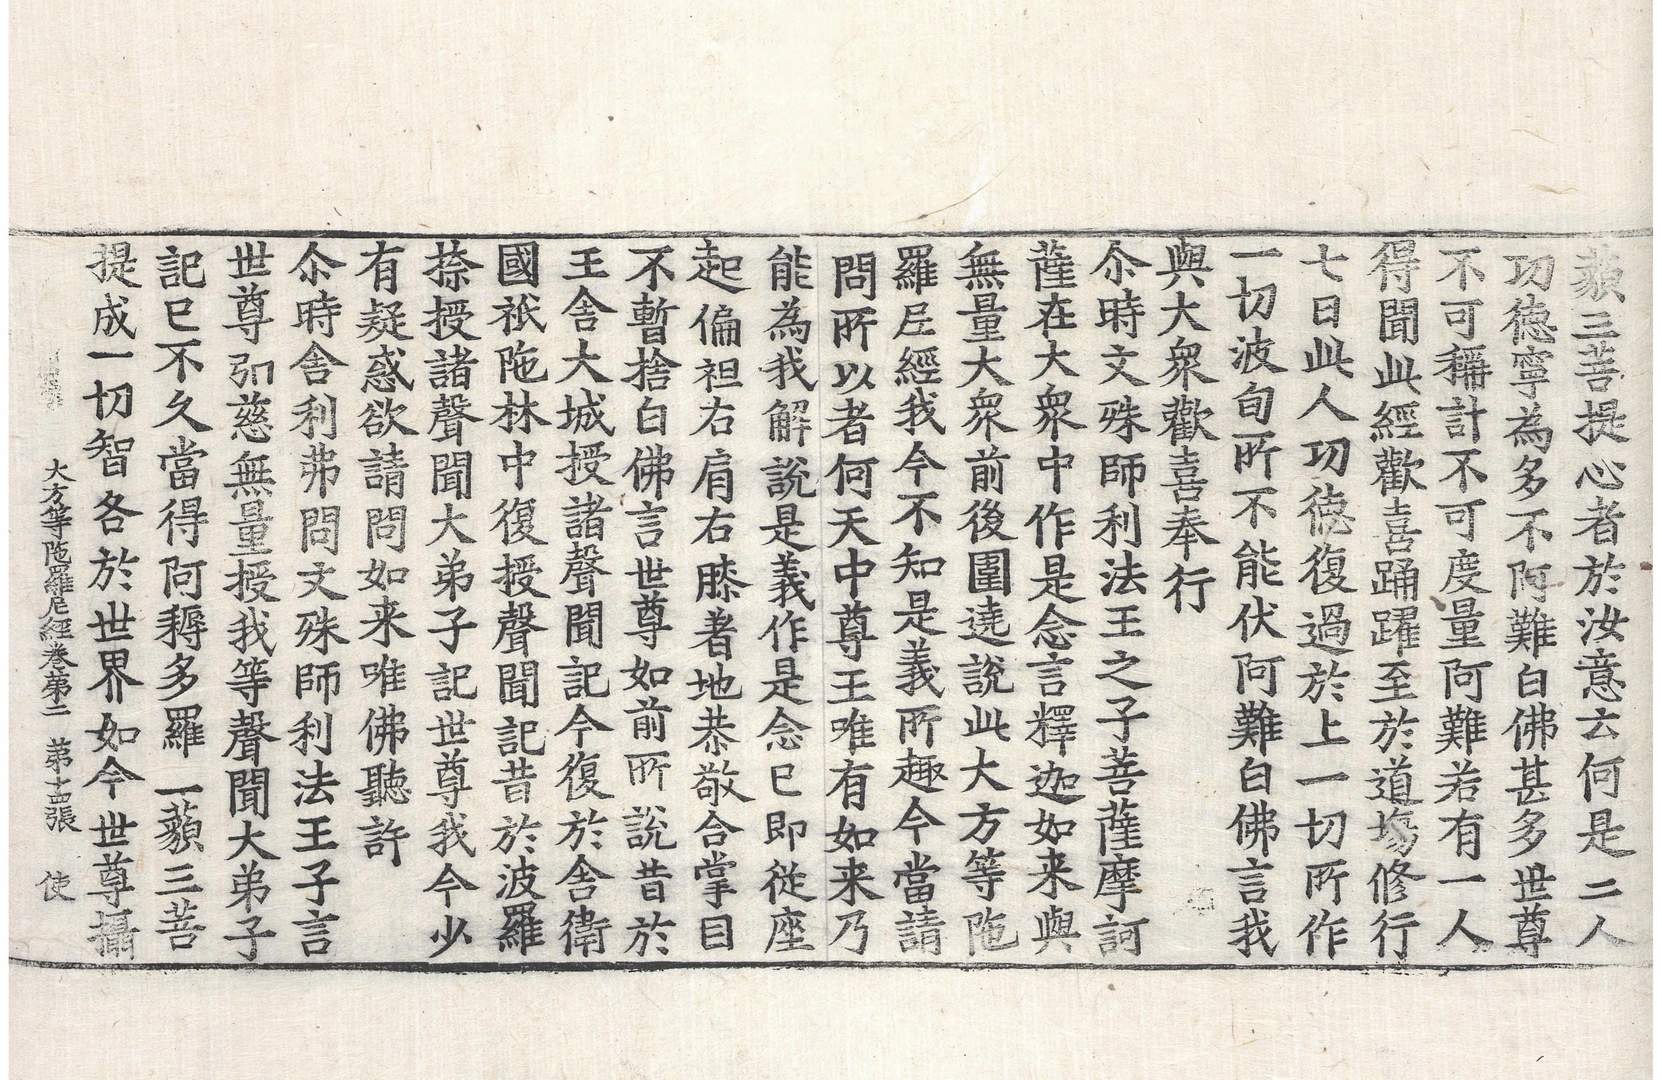 藐三菩提心者於汝意云何是二人
功德寧為多不阿難白佛甚多世尊
不可稱計不可度量阿難若有一人
得聞此經歡喜踊躍至於道場修行
七日此人功德復過於上一切所作
一切波旬所不能伏阿難白佛言我
與大衆歡喜奉行
尒時文殊師利法王之子菩薩摩訶
薩在大衆中作是念言釋迦如来與
無量大衆前後圍遶說此大方等陁
羅尼經我今不知是義所趣今當請
問所以者何天中尊王唯有如来乃
能為我解說是義作是念已即從座
起偏袒右肩右膝著地恭敬合掌目
不暫捨白佛言世尊如前所說昔於
王舍大城授諸聲聞記今復於舍衛
國祇陁林中復授聲聞記昔於波羅
㮈授諸聲聞大弟子記世尊我今少
有疑惑欲請問如来唯佛聽許
尒時舍利弗問文殊師利法王子言
世尊弘慈無量授我等聲聞大弟子
記已不久當得阿耨多羅一藐三菩
提成一切智各於世界如今世尊攝
大方等陁羅尼經卷第二 第十四張 使